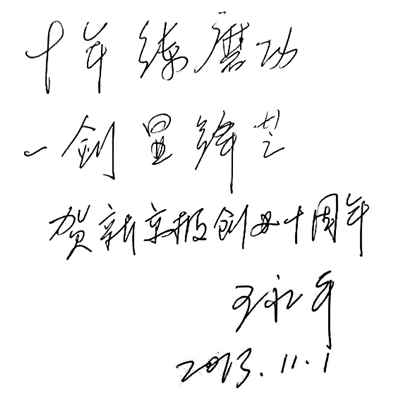 十年练磨功
一剑显锋芒
贺新京报创办十周年
王永平
2013.11.1